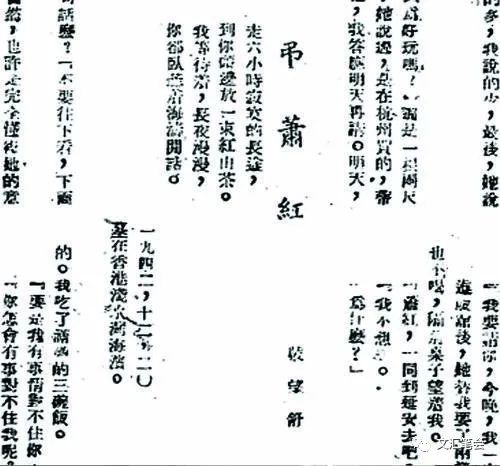 的多，我說的少，最後，她說
爲好玩嗎？是一根兩尺
，她說過，是在杭州買的，帶
，我答應明天再講。明天，
「我要請你，今晚，我一
進飯館後，她替我要了兩
也不喝，隔着桌子望着我。
「蕭紅，一同到延安去吧
「我不想
「爲什麽？」
弔蕭紅
戴望舒
走六小時寂寞的長途，
到你頭邊放一束紅山茶。
我等待着，長夜漫漫，
你卻臥聽着海濤閒話。
一九四二，十一，二〇
墓在香港淺水灣海濱。
話麽？「不要往下看，下面
，也許是完全懂得她的意
的。我吃了滿滿的三碗飯。
「要是我有事情對不住你
「你怎會有事對不住我呢。
文汇笔会